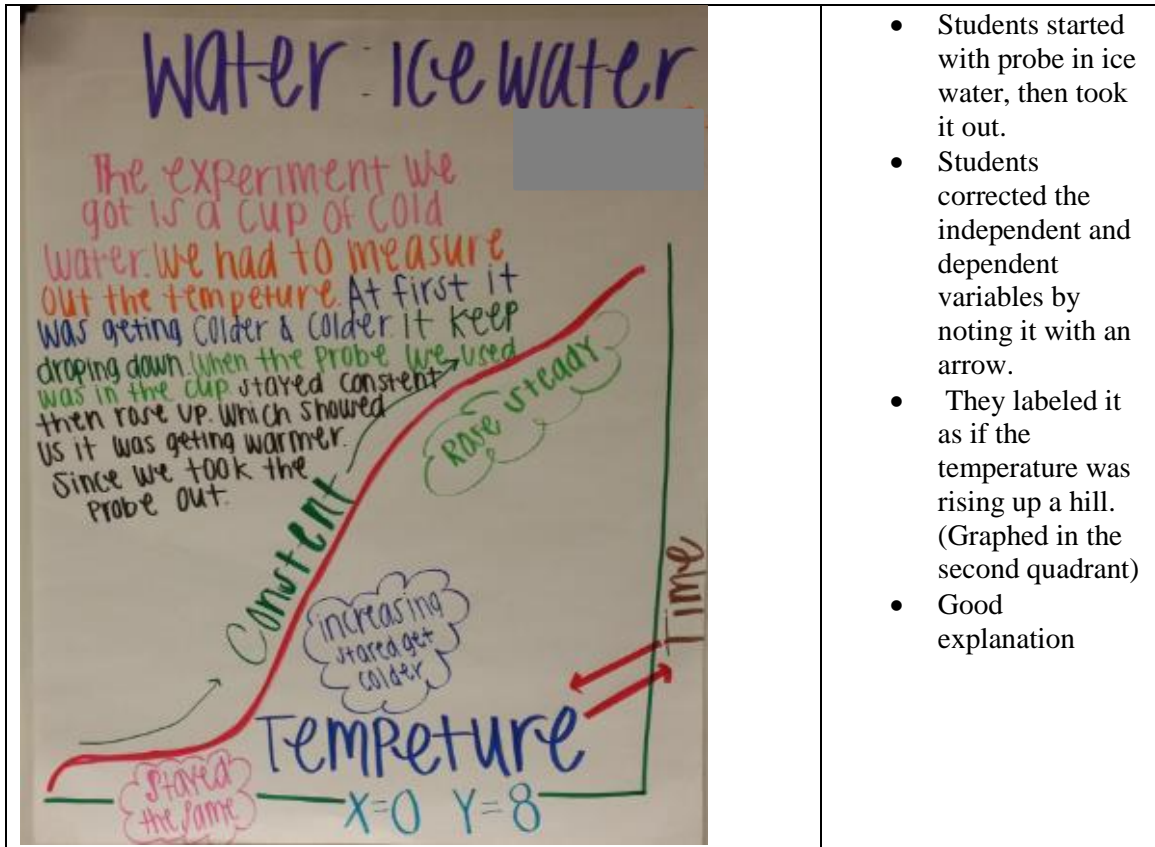 Water : Ice water
The experiment we
got is a cup of cold
water. We had to measure
out the tempeture. At first it
was geting colder & colder. it keep
droping down. When the probe we used
was in the cup stayed constent
then rose up. Which showed
us it was geting warmer.
Since we took the
probe out.
Rose steady
Constent
increasing
stared get
colder
Time
Tempeture
Stayed
the same
X=0 Y=8
• Students started
with probe in ice
water, then took
it out.
• Students
corrected the
independent and
dependent
variables by
noting it with an
arrow.
• They labeled it
as if the
temperature was
rising up a hill.
(Graphed in the
second quadrant)
• Good
explanation